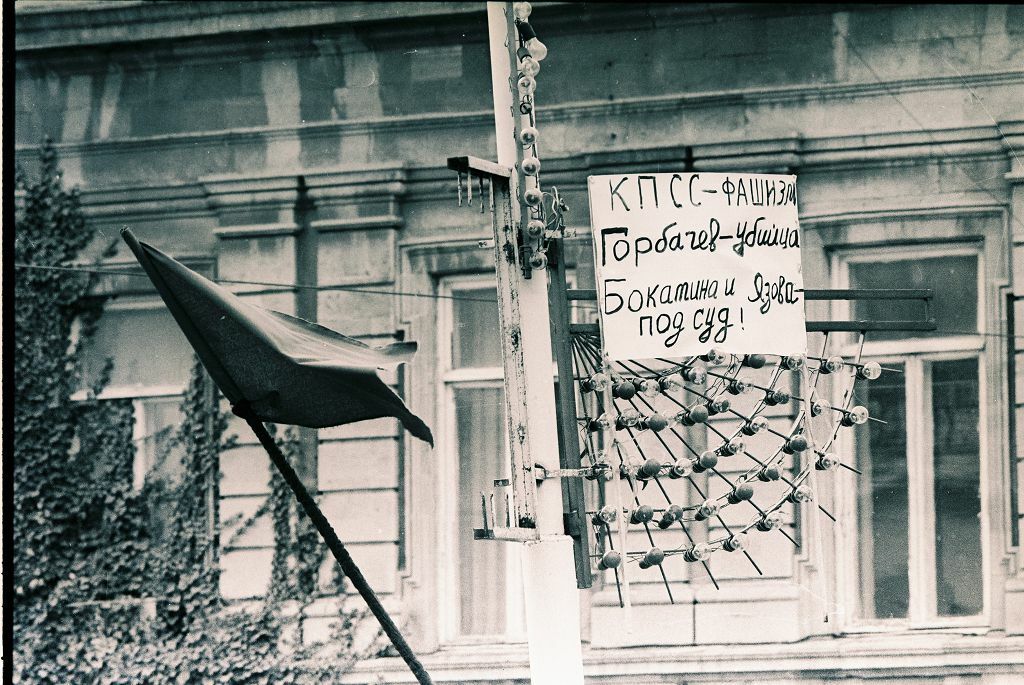 КПСС-ФАШИЗМ
Горбачев-убийца
Бокатина и Язова-
под суд!